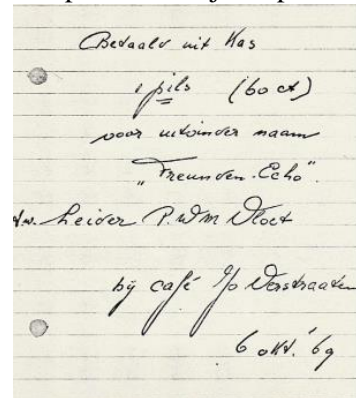 Betaald uit Kas
1 pils (60 ct)
voor uitvinder naam
"Freunden-Echo".
t.w. Leider P. Wm Vloet
bij café Verstraaten
6 okt. '69